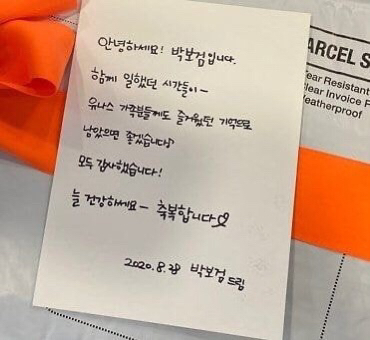 안녕하세요! 박보검입니다.
함께 일했던 시간들이-
유나스 가족분들께도 즐거웠던 기억으로
남았으면 좋겠습니다♪
모두 감사했습니다!
늘 건강하세요- 축복합니다
2020.8.28 박보검 드림
ARCEL S
ear Resistant
lear Invoice P
eatherproof